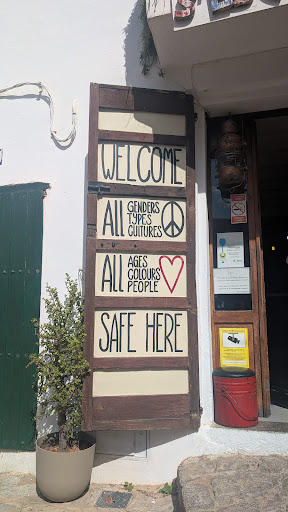 WELCOME
ALL GENDERS
TYPES
CULTURES
ALL AGES
COLOURS
PEOPLE
SAFE HERE